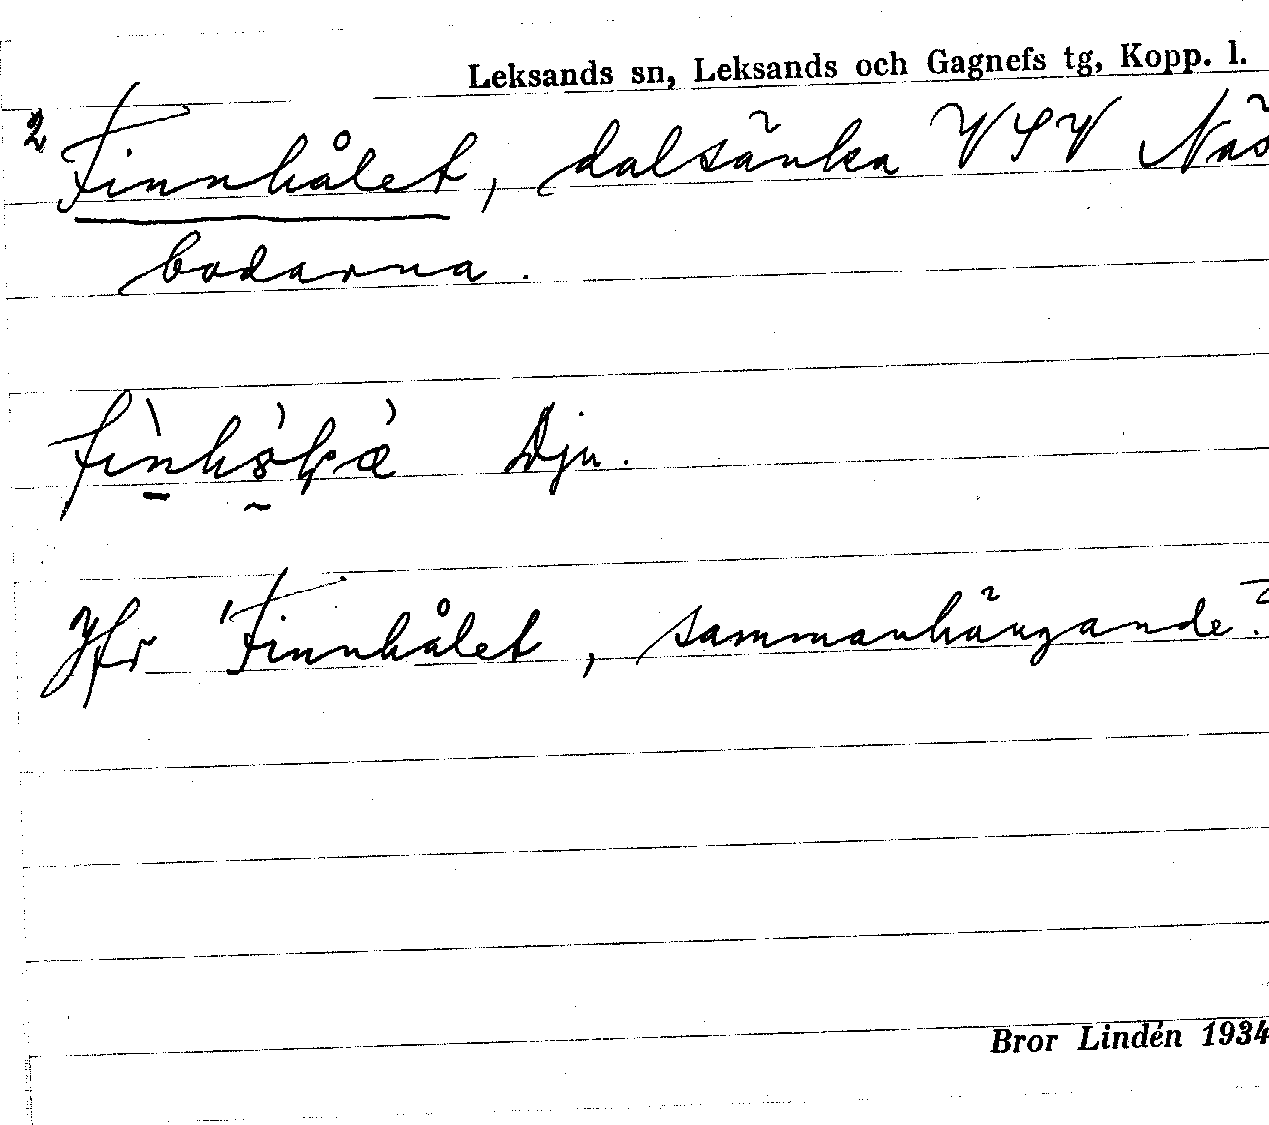 Leksands sn, Leksands och Gagnefs tg, Kopp. l.
2 Finnhålet, dalsänka VSV Näs
bodarna.
Dju.
Jfr 'Finnhålet, sammanhängande?
Bror Lindén 1934